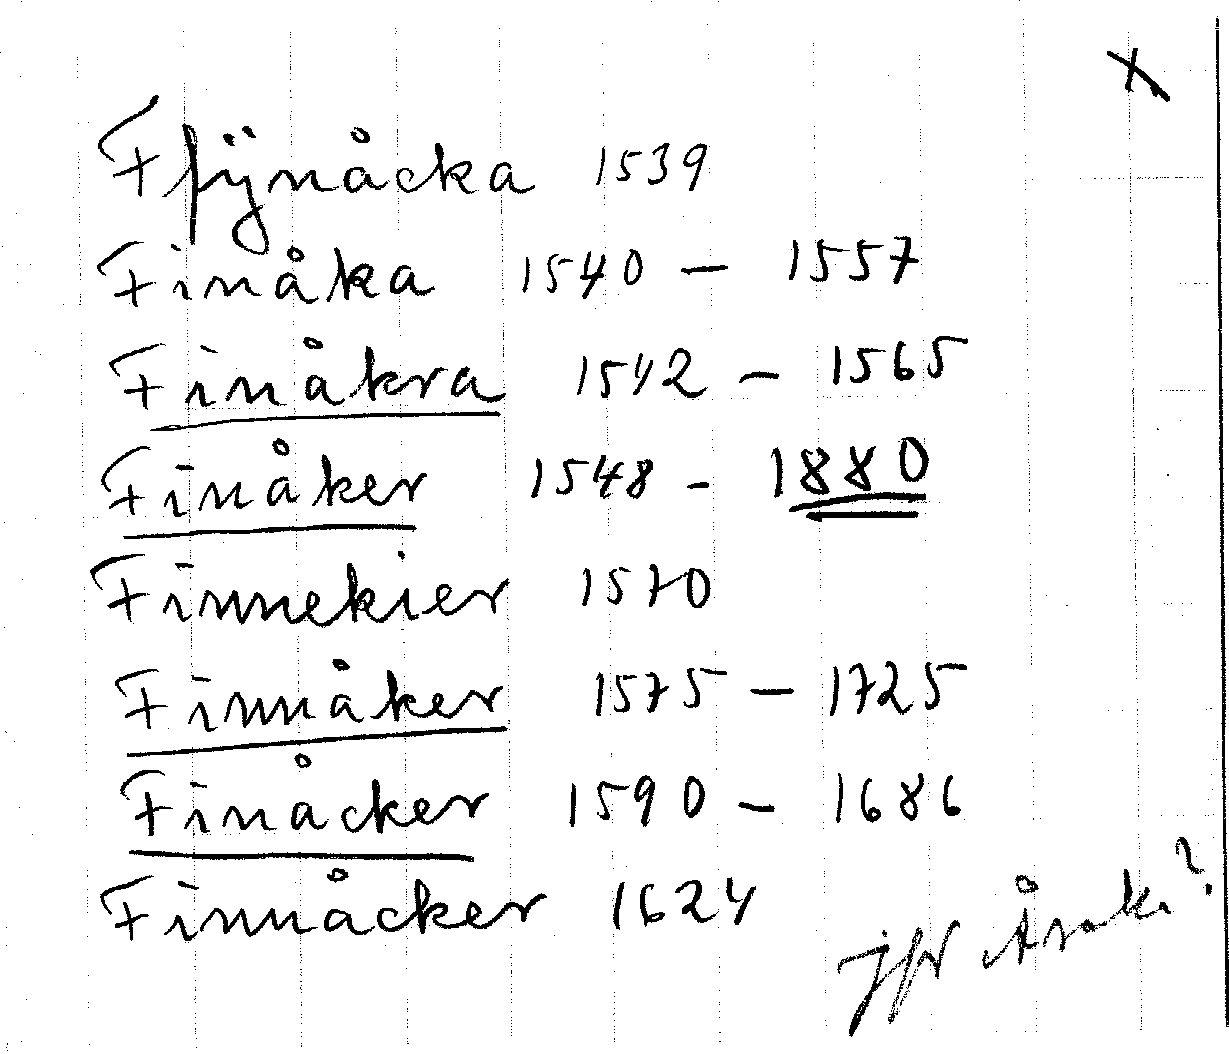 Ffÿnåcka 1539
Finåka 1540 – 1557
Finåkra 1542 – 1565
Finåker 1548 - 1880
Finnekier 1570
Finnåker 1575 – 1725
Finåcker 1590 – 1686
Finnåcker 1624
jfr Åsaka?